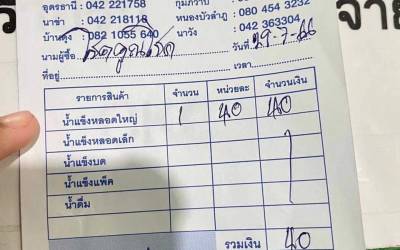 อุดรธานี : 042 221758
กุมภวาปี
นาข่า : 042 218118
หนองบัวลำภู : 080 454 3232
บ้านดุง : 082 1055 640
นาวัง : 042 363304
นามผู้ซื้อ วันที่ 29-7-66
ที่อยู่ เวลา
รายการสินค้า จำนวน หน่วยละ จำนวนเงิน
น้ำแข็งหลอดใหญ่ 1 40 40
น้ำแข็งหลอดเล็ก
น้ำแข็งบด
น้ำแข็งแพ็ค
น้ำดื่ม
รวมเงิน 40